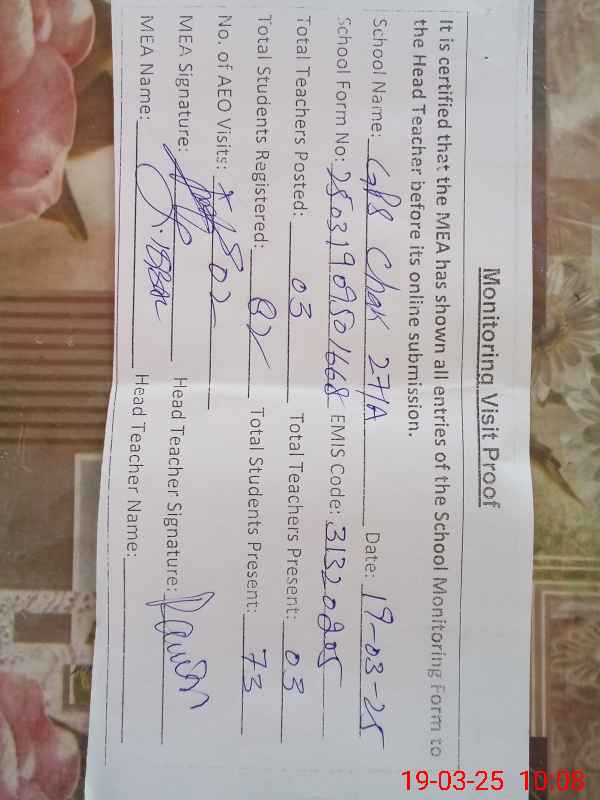 Monitoring Visit Proof
It is certified that the MEA has shown all entries of the School Monitoring Form to
the Head Teacher before its online submission.
School Name: GPS Chak 27/A Date: 19-03-25
School Form No: 25031909501668 EMIS Code: 31320205
Total Teachers Posted: 03 Total Teachers Present: 03
Total Students Registered: 82 Total Students Present: 73
No. of AEO Visits: 02
MEA Signature: Head Teacher Signature:
MEA Name: Head Teacher Name:
19-03-25 10:08